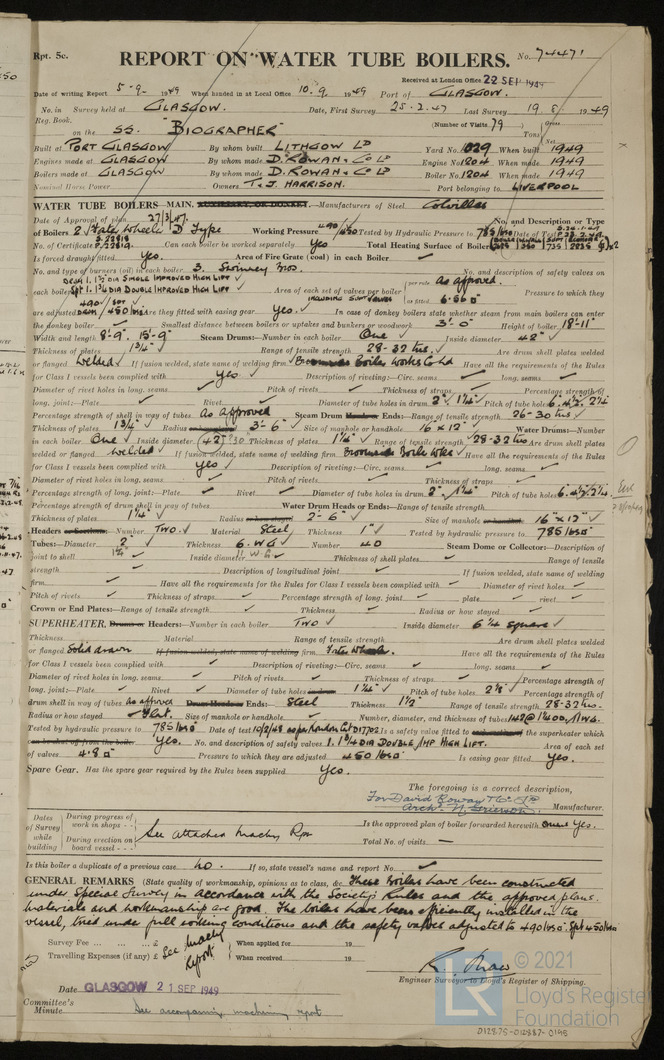 Rpt. 5c.
REPORT ON WATER TUBE BOILERS.
No. 74471
Received at London Office 22 SEP 1949
Date of writing Report 5-9- 1949 When handed in at Local Office 10.9. 1949 Port of GLASGOW.
No. in Reg. Book. Survey held at GLASGOW. Date, First Survey 25-2.47 Last Survey 19.8. 1949
on the SS. "BIOGRAPHER" (Number of Visits 79) Tons Gross Net
Built at PORT GLASGOW By whom built LITHGOW LD Yard No. 1029 When built 1949
Engines made at GLASGOW By whom made D. ROWAN & Co LD Engine No. 1204 When made 1949
Boilers made at GLASGOW By whom made D. ROWAN & Co LD Boiler No. 1204 When made 1949
Nominal Horse Power Owners T. & J. HARRISON. Port belonging to LIVERPOOL
WATER TUBE BOILERS—MAIN, Manufacturers of Steel Colvilles
Date of Approval of plan 27/3/47. No. and Description or Type
of Boilers 2 Foster Wheeler D Type Working Pressure 490/450 Tested by Hydraulic Pressure to 785 lbs Date of Test
No. of Certificate Can each boiler be worked separately. Yes Total Heating Surface of Boilers
Is forced draught fitted. Yes. Area of Fire Grate (coal) in each Boiler
No. and type of burners (oil) in each boiler 3. No. and description of safety valves on
each boiler DRUM 1, 1½ DIA SINGLE IMPROVED HIGH LIFT Spt 1. 1¾ DIA DOUBLE IMPROVED HIGH LIFT Area of each set of valves per boiler per rule as approved. as fitted Pressure to which they
are adjusted Are they fitted with easing gear Yes. In case of donkey boilers state whether steam from main boilers can enter
the donkey boiler Smallest distance between boilers or uptakes and bunkers or woodwork 3'-0" Height of boiler 18'-11"
Width and length 8'-9" 15'-9" Steam Drums:—Number in each boiler One Inside diameter 42"
Thickness of plates 1¾" Range of tensile strength 28-32 tns. Are drum shell plates welded
or flanged welded If fusion welded, state name of welding firm Have all the requirements of the Rules
for Class I vessels been complied with yes Description of riveting:—Circ. seams long. seams
Diameter of rivet holes in long. seams Pitch of rivets Thickness of straps Percentage strength of
long. joint:—Plate Rivet Diameter of tube holes in drum 2" 1¼" Pitch of tube holes
Percentage strength of shell in way of tubes as approved Steam Drum Ends:—Range of tensile strength 26-30 tns
Thickness of plates 1¾" Radius 3'-6" Size of manhole or handhole 16" x 12" Water Drums:—Number
in each boiler One Inside diameter Thickness of plates 1¼" Range of tensile strength 28-32 tns Are drum shell plates
welded or flanged welded If fusion welded, state name of welding firm Have all the requirements of the Rules
for Class I vessels been complied with yes Description of riveting:—Circ. seams long. seams
Diameter of rivet holes in long. seams Pitch of rivets Thickness of straps
Percentage strength of long. joint:—Plate Rivet Diameter of tube holes in drum 2" 1¼" Pitch of tube holes
Percentage strength of drum shell in way of tubes Water Drum Heads or Ends:—Range of tensile strength
Thickness of plates 1¼" Radius 2'-6" Size of manhole 16" x 12"
Headers Number TWO. Material Steel Thickness 1" Tested by hydraulic pressure to 785 lbs
Tubes:—Diameter 2" Thickness 6. WG Number 40 Steam Dome or Collector:—Description of
joint to shell Inside diameter Thickness of shell plates Range of tensile
strength Description of longitudinal joint If fusion welded, state name of welding
firm Have all the requirements for the Rules for Class I vessels been complied with Diameter of rivet holes
Pitch of rivets Thickness of straps Percentage strength of long. joint plate rivet
Crown or End Plates:—Range of tensile strength Thickness Radius or how stayed
SUPERHEATER, Headers:—Number in each boiler TWO Inside diameter 6¼ square
Thickness Material Range of tensile strength Are drum shell plates welded
or flanged Solid drawn Foster Wheeler. Have all the requirements of the Rules
for Class I vessels been complied with Description of riveting:—Circ. seams long. seams
Diameter of rivet holes in long. seams Pitch of rivets Thickness of straps Percentage strength of
long. joint:—Plate Rivet Diameter of tube holes 1¼" Pitch of tube holes 2⅛" Percentage strength of
drum shell in way of tubes as approved Ends:— Steel Thickness 1½" Range of tensile strength 28-32 tns.
Radius or how stayed Flat. Size of manhole or handhole Number, diameter, and thickness of tubes
Tested by hydraulic pressure to 785 lbs Date of test 10/2/48 Is a safety valve fitted to the superheater which
Yes. No. and description of safety valves 1. 1¾ DIA DOUBLE IMP HIGH LIFT. Area of each set
of valves 4.8 Pressure to which they are adjusted 450 lbs Is easing gear fitted Yes.
Spare Gear. Has the spare gear required by the Rules been supplied Yes.
The foregoing is a correct description,
For David Rowan & Co Ld
Arch. W. Grierson. Manufacturer.
Dates of Survey while building
During progress of work in shops - -
During erection on board vessel - - -
See attached machy Rpt
Is the approved plan of boiler forwarded herewith Yes.
Total No. of visits —
Is this boiler a duplicate of a previous case no. If so, state vessel's name and report No.
GENERAL REMARKS (State quality of workmanship, opinions as to class, &c. These Boilers have been constructed
under Special Survey in accordance with the Society's Rules and the approved plans.
Materials and workmanship are good. The boilers have been efficiently installed in the
vessel, tried under full working conditions and the safety valves adjusted to 490 lbs. Spt 450 lbs
Survey Fee ... ... ... £ See machy report When applied for 19
Travelling Expenses (if any) £ When received 19
R. Shaw
Engineer Surveyor to Lloyd's Register of Shipping.
Date GLASGOW 21 SEP 1949
Committee's Minute See accompanying machinery report
© 2021
LR
Lloyd's Register Foundation
012875-012887-0195